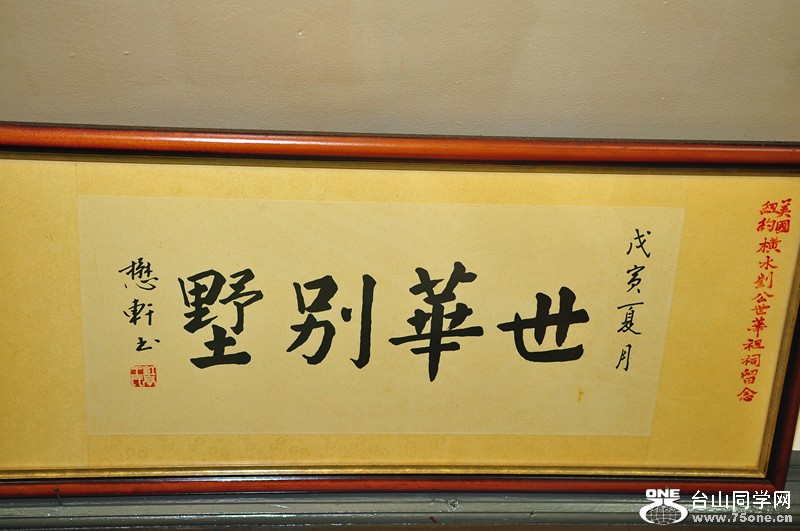 美國
紐約
橫水劉公世華祖祠留念
戊寅夏月
世華別墅
懋軒书
ONE
台山同学网
www.75one.cn